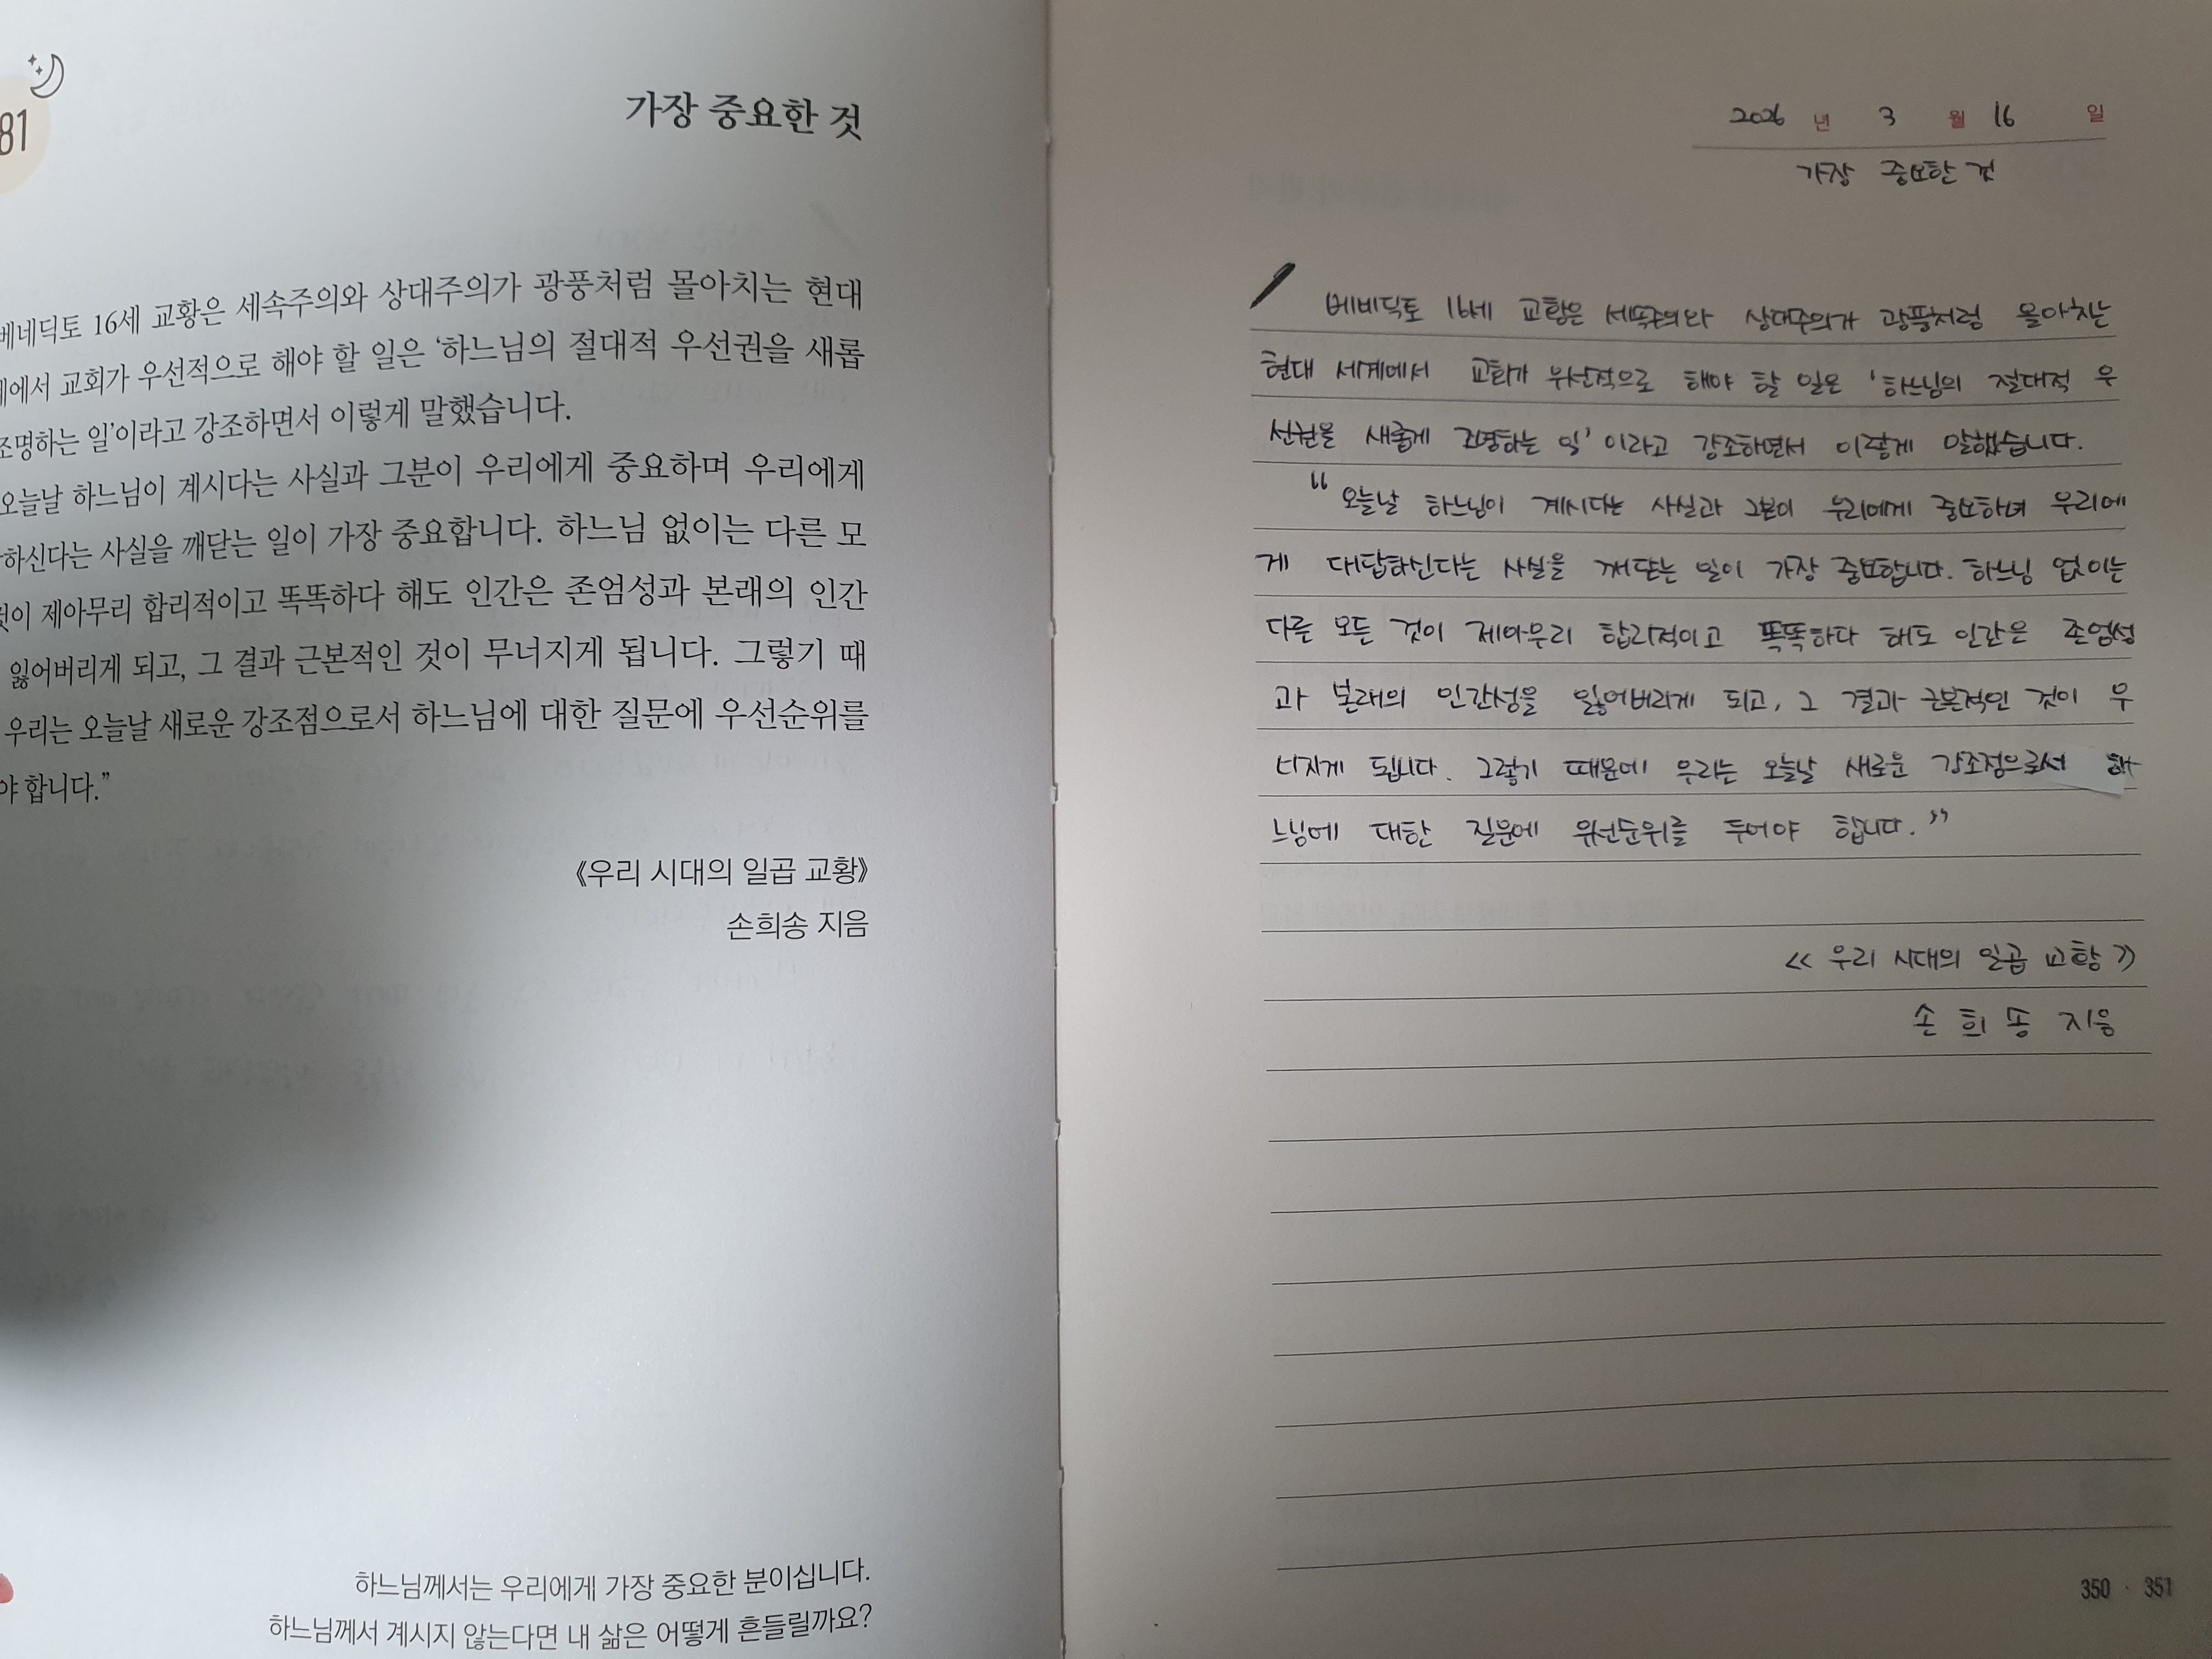 81
가장 중요한 것
베네딕토 16세 교황은 세속주의와 상대주의가 광풍처럼 몰아치는 현대
에서 교회가 우선적으로 해야 할 일은 ‘하느님의 절대적 우선권을 새롭
조명하는 일’이라고 강조하면서 이렇게 말했습니다.
오늘날 하느님이 계시다는 사실과 그분이 우리에게 중요하며 우리에게
하신다는 사실을 깨닫는 일이 가장 중요합니다. 하느님 없이는 다른 모
것이 제아무리 합리적이고 똑똑하다 해도 인간은 존엄성과 본래의 인간
잃어버리게 되고, 그 결과 근본적인 것이 무너지게 됩니다. 그렇기 때
우리는 오늘날 새로운 강조점으로서 하느님에 대한 질문에 우선순위를
야 합니다.”
《우리 시대의 일곱 교황》
손희송 지음
하느님께서는 우리에게 가장 중요한 분이십니다.
하느님께서 계시지 않는다면 내 삶은 어떻게 흔들릴까요?
2026 년 3 월 16 일
가장 중요한 것
베네딕토 16세 교황은 세속주의와 상대주의가 광풍처럼 몰아치는
현대 세계에서 교회가 우선적으로 해야 할 일은 ‘하느님의 절대적 우
선권을 새롭게 조명하는 일’이라고 강조하면서 이렇게 말했습니다.
“오늘날 하느님이 계시다는 사실과 그분이 우리에게 중요하며 우리에
게 대답하신다는 사실을 깨닫는 일이 가장 중요합니다. 하느님 없이는
다른 모든 것이 제아무리 합리적이고 똑똑하다 해도 인간은 존엄성
과 본래의 인간성을 잃어버리게 되고, 그 결과 근본적인 것이 무
너지게 됩니다. 그렇기 때문에 우리는 오늘날 새로운 강조점으로서 하
느님에 대한 질문에 우선순위를 두어야 합니다.”
《우리 시대의 일곱 교황》
손 희 송 지음
350 · 351